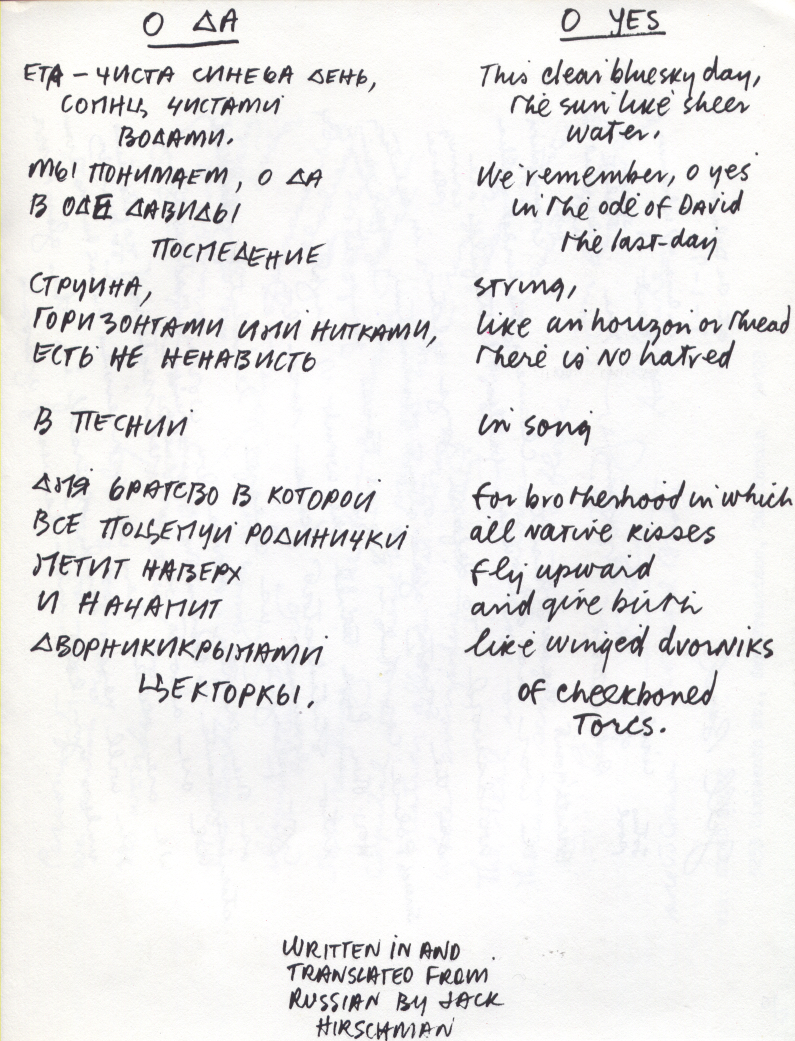 О ДА
ЕТА – ЧИСТА СИНЕВА ДЕНЬ,
СОЛНЦ ЧИСТАМИ
ВОДАМИ.
МЫ ПОНИМАЕМ, О ДА
В ОДЕ ДАВИДЫ
ПОСЛЕДЕНИЕ
СТРУИНА,
ГОРИЗОНТАМИ ИЛИ НИТКАМИ,
ЕСТЬ НЕ НЕНАВИСТЬ
В ПЕСНИЙ
ДЛЯ БРАТСВО В КОТОРОЙ
ВСЕ ПОЦЕЛУЙ РОДИНИЧКИ
ЛЕТИТ НАВЕРХ
И НАЧАЛИТ
ДВОРНИКИКРЫЛАМИ
ЩЕКТОРКЫ.
O YES
This clear bluesky day,
the sun like sheer
water.
We remember, o yes
in the ode of David
the last-day
string,
like an horizon or thread
there is no hatred
in song
for brotherhood in which
all native kisses
fly upward
and give birth
like winged dvorniks
of cheekboned
Torcs.
WRITTEN IN AND
TRANSLATED FROM
RUSSIAN BY JACK
HIRSCHMAN